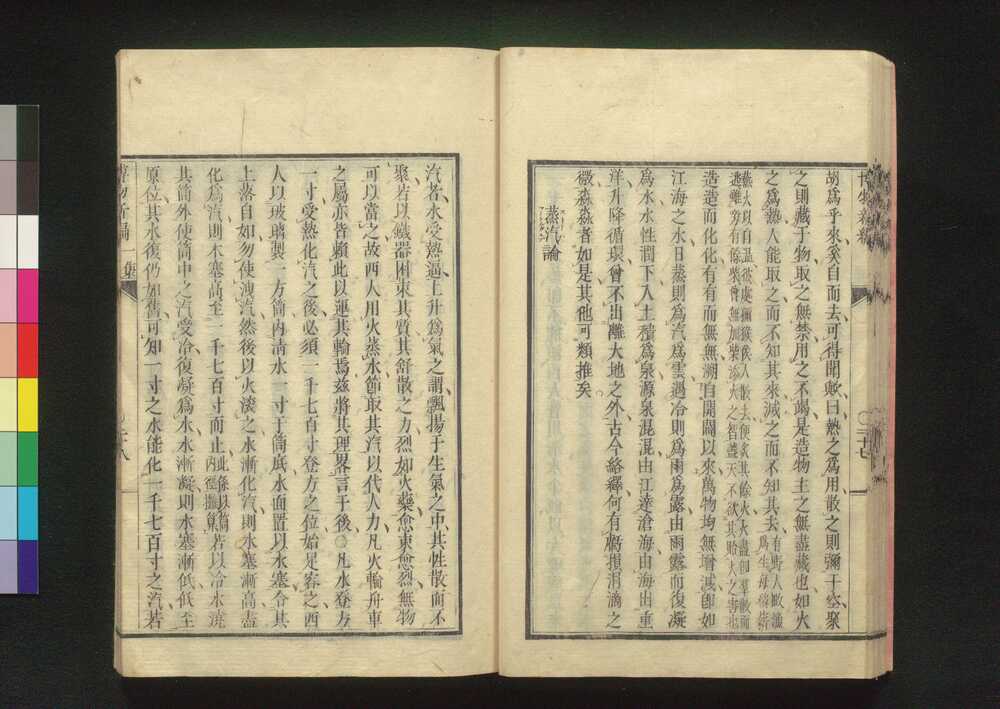 博物新編
二十七
胡爲乎來奚自而去可得聞歟曰熱之爲用散之則彌于空聚
之則藏于物取之無禁用之不竭是造物主之無盡藏也如火
之爲熱人能取之而不知其來滅之而不知其去
造造而化化有有而無無溯自開闢以來萬物均無增減卽如
江海之水日蒸則爲汽爲雲遇冷則爲雨爲露由雨露而復凝
爲水水性潤下入土積爲泉源泉混混由江達滄海由海出重
洋升降循環曾不出離大地之外古今絡繹何有虧損涓滴之
微淼淼者如是其他可類推矣
蒸汽論
汽者水受熱逼上升爲氣之謂飄揚于生氣之中其性散而不
聚若以鐵器困束其質其舒散之力烈如火藥愈束愈烈無物
可以當之故西人用火蒸水節取其汽以代人力凡火輪舟車
之屬亦皆賴此以運其輪焉茲將其理畧言于後○凡水登方
一寸受熱化汽之後必須一千七百寸登方之位始足容之西
人以玻璃製一方筒內清水一寸于筒底水面置以木塞令其
上落自如勿使洩汽然後以火滾之水漸化汽則木塞漸高盡
化爲汽則木塞高至一千七百寸而止此條以筒內徑撇算若以冷水澆
其筒外使筒中之汽受冷復凝爲水水漸凝則木塞漸低低至
原位其水復仍如舊可知一寸之水能化一千七百寸之汽若
博物新編
一集
二十八